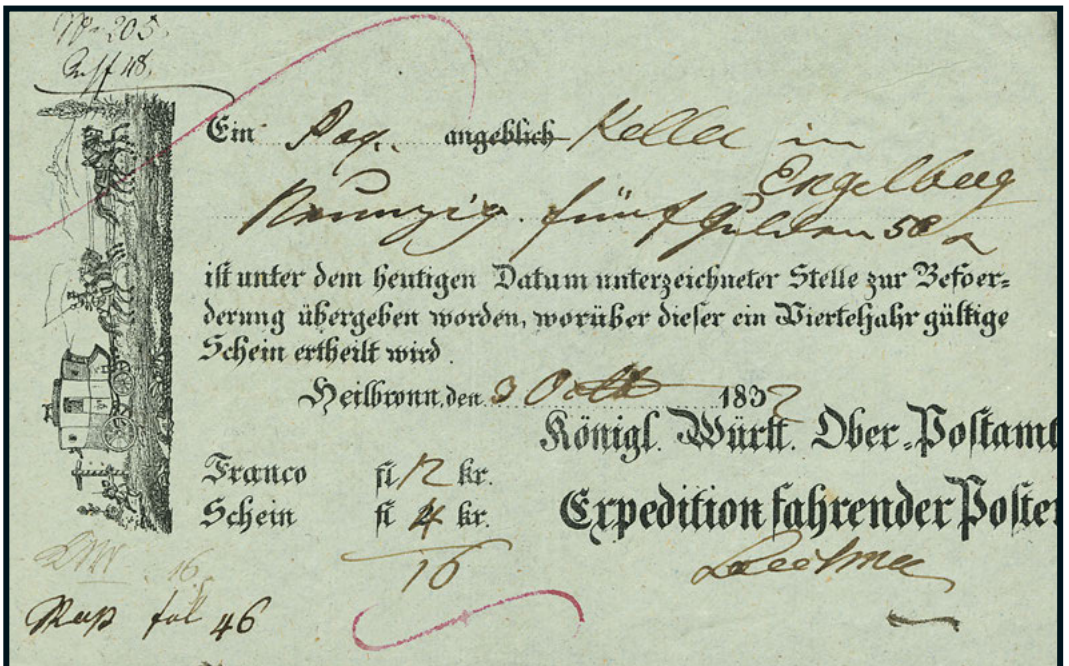 No 205.
Ein Paq. angeblich Keller in
Engelberg
Neunzig fünf Gulden 50 x
ist unter dem heutigen Datum unterzeichneter Stelle zur Befoer=
derung übergeben worden, worüber dieser ein Vierteljahr gültige
Schein ertheilt wird.
Heilbronn, den 3 Octb 1832
Königl. Württ. Ober=Postamt
Expedition fahrender Posten
Franco fl 12 kr.
Schein fl 4 kr.
16
16
fol 46